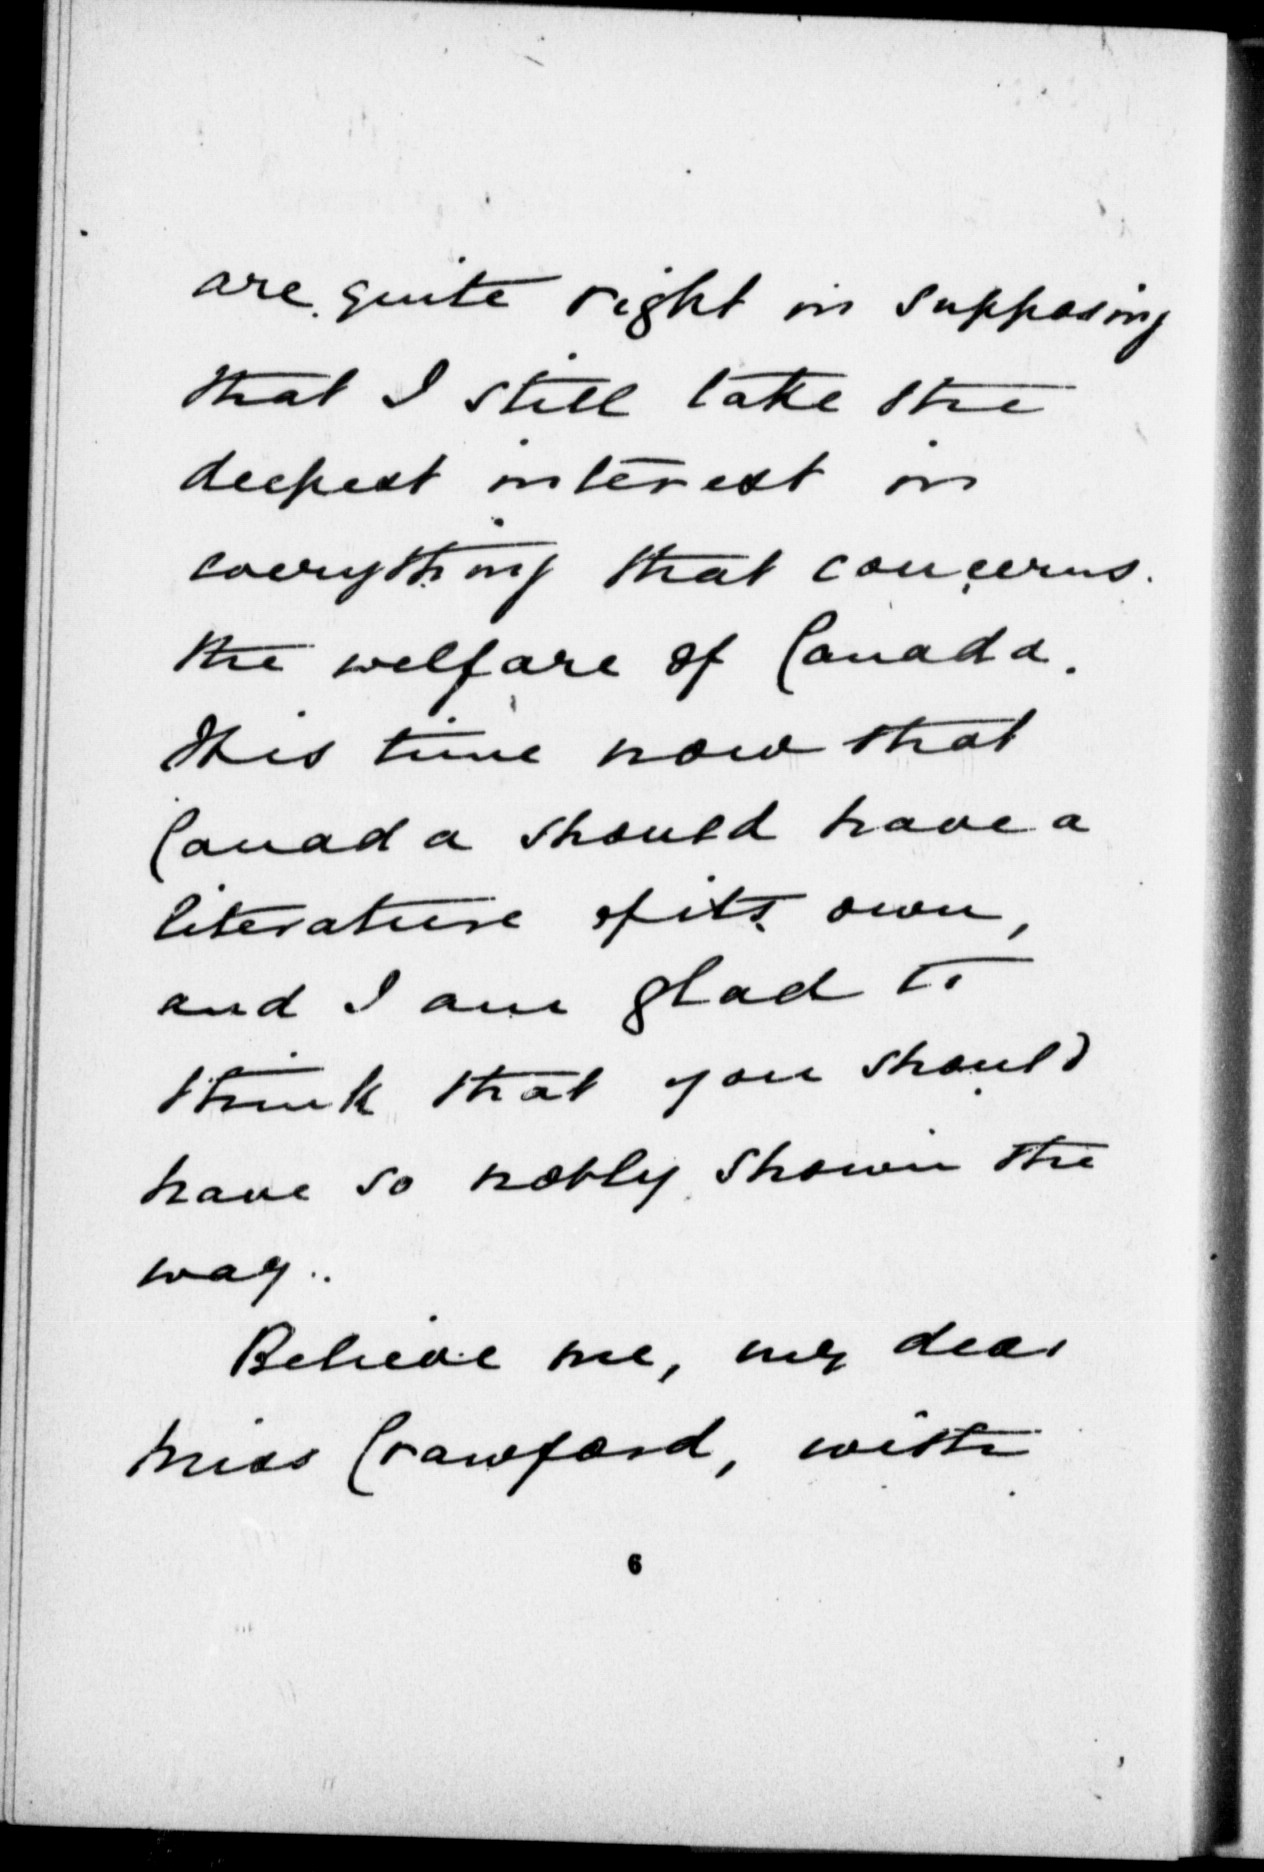 are quite right in supposing
that I still take the
deepest interest in
everything that concerns
the welfare of Canada.
It is time now that
Canada should have a
literature of its own,
and I am glad to
think that you should
have so nobly shown the
way.
Believe me, my dear
Miss Crawford, with
6